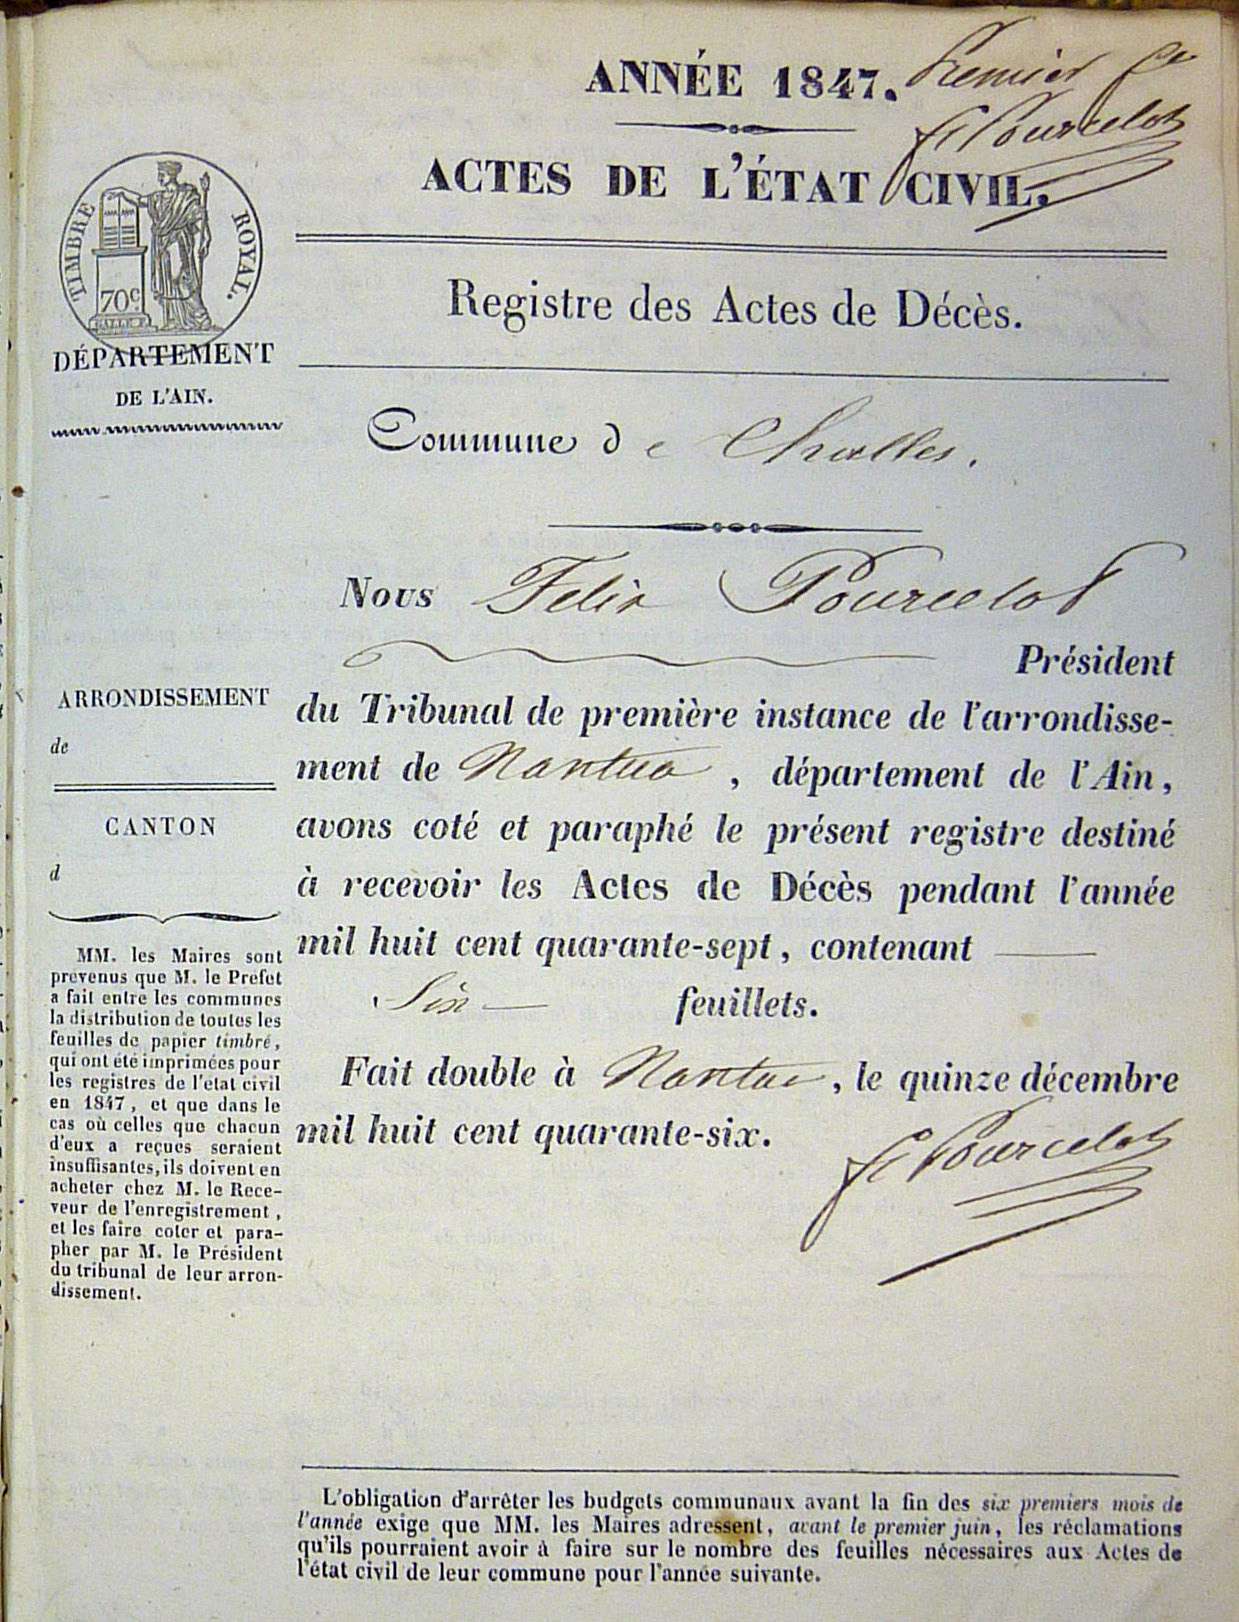 ANNÉE 1847. Premier fet
F Pourcelot
ACTES DE L'ÉTAT CIVIL.
TIMBRE ROYAL.
70c
DÉPARTEMENT
DE L'AIN.
Registre des Actes de Décès.
Commune de Challes.
Nous Felix Pourcelot
Président
du Tribunal de première instance de l'arrondisse-
ment de Nantua, département de l'Ain,
avons coté et paraphé le présent registre destiné
à recevoir les Actes de Décès pendant l'année
mil huit cent quarante-sept, contenant
Six feuillets.
Fait double à Nantua, le quinze décembre
mil huit cent quarante-six.
F Pourcelot
ARRONDISSEMENT
de
CANTON
d
MM. les Maires sont
prévenus que M. le Préfet
a fait entre les communes
la distribution de toutes les
feuilles de papier timbré,
qui ont été imprimées pour
les registres de l'état civil
en 1847, et que dans le
cas où celles que chacun
d'eux a reçues seraient
insuffisantes, ils doivent en
acheter chez M. le Rece-
veur de l'enregistrement,
et les faire coter et para-
pher par M. le Président
du tribunal de leur arron-
dissement.
L'obligation d'arrêter les budgets communaux avant la fin des six premiers mois de
l'année exige que MM. les Maires adressent, avant le premier juin, les réclamations
qu'ils pourraient avoir à faire sur le nombre des feuilles nécessaires aux Actes de
l'état civil de leur commune pour l'année suivante.